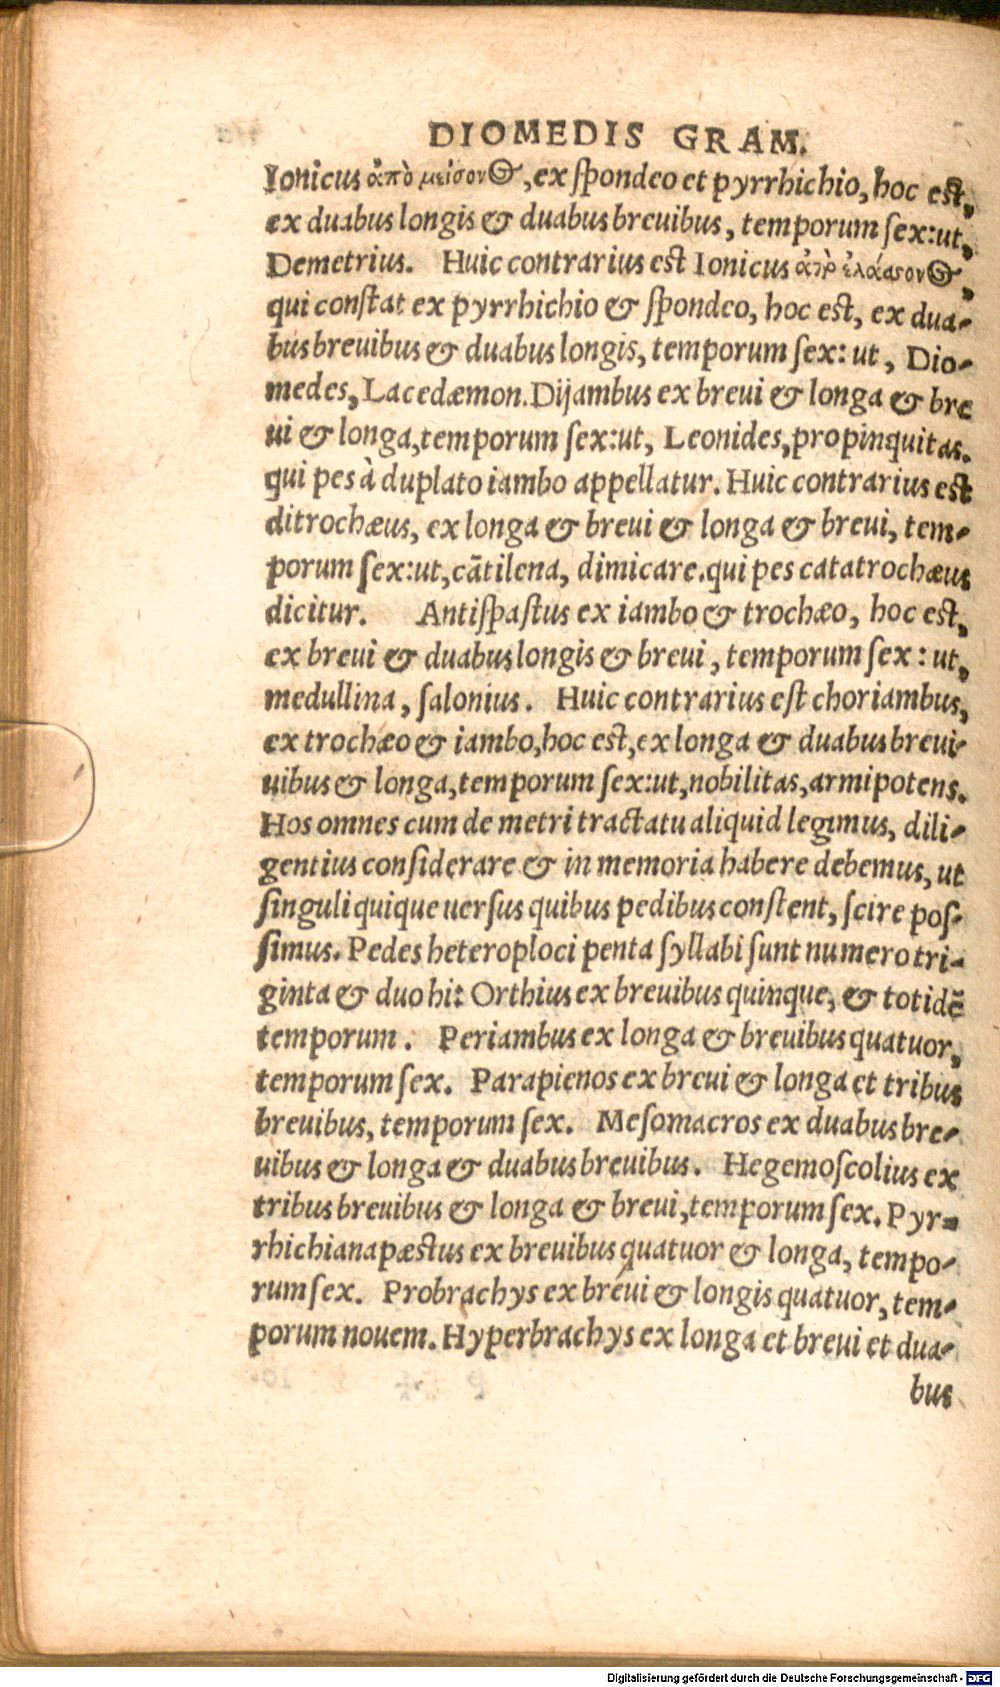 DIOMEDIS GRAM.
Ionicus ἀπὸ μείσονος, ex ſpondeo et pyrrhichio, hoc eſt,
ex duabus longis & duabus breuibus, temporum ſex: ut,
Demetrius. Huic contrarius eſt Ionicus ἀπ' ἐλάσσονος,
qui conſtat ex pyrrhichio & ſpondeo, hoc eſt, ex dua-
bus breuibus & duabus longis, temporum ſex: ut, Dio-
medes, Lacedæmon. Dijambus ex breui & longa & bre
ui & longa, temporum ſex: ut, Leonides, propinquitas.
qui pes à duplato iambo appellatur. Huic contrarius eſt
ditrochæus, ex longa & breui & longa & breui, tem-
porum ſex: ut, cātilena, dimicare. qui pes catatrochæus
dicitur. Antiſpaſtus ex iambo & trochæo, hoc eſt,
ex breui & duabus longis & breui, temporum ſex: ut,
medullina, ſalonius. Huic contrarius eſt choriambus,
ex trochæo & iambo, hoc eſt, ex longa & duabus breui-
uibus & longa, temporum ſex: ut, nobilitas, armipotens.
Hos omnes cum de metri tractatu aliquid legimus, dili-
gentius conſiderare & in memoria habere debemus, ut
ſinguli quique uerſus quibus pedibus conſtent, ſcire poſ-
ſimus. Pedes heteroploci penta ſyllabi ſunt numero tri-
ginta & duo hi: Orthius ex breuibus quinque, & totidē
temporum. Periambus ex longa & breuibus quatuor,
temporum ſex. Parapienos ex breui & longa et tribus
breuibus, temporum ſex. Meſomacros ex duabus bre-
uibus & longa & duabus breuibus. Hegemoſcolius ex
tribus breuibus & longa & breui, temporum ſex. Pyr-
rhichianapæſtus ex breuibus quatuor & longa, tempo-
rum ſex. Probrachys ex breui & longis quatuor, tem-
porum nouem. Hyperbrachys ex longa et breui et dua-
bus
Digitalisierung gefördert durch die Deutsche Forschungsgemeinschaft - DFG